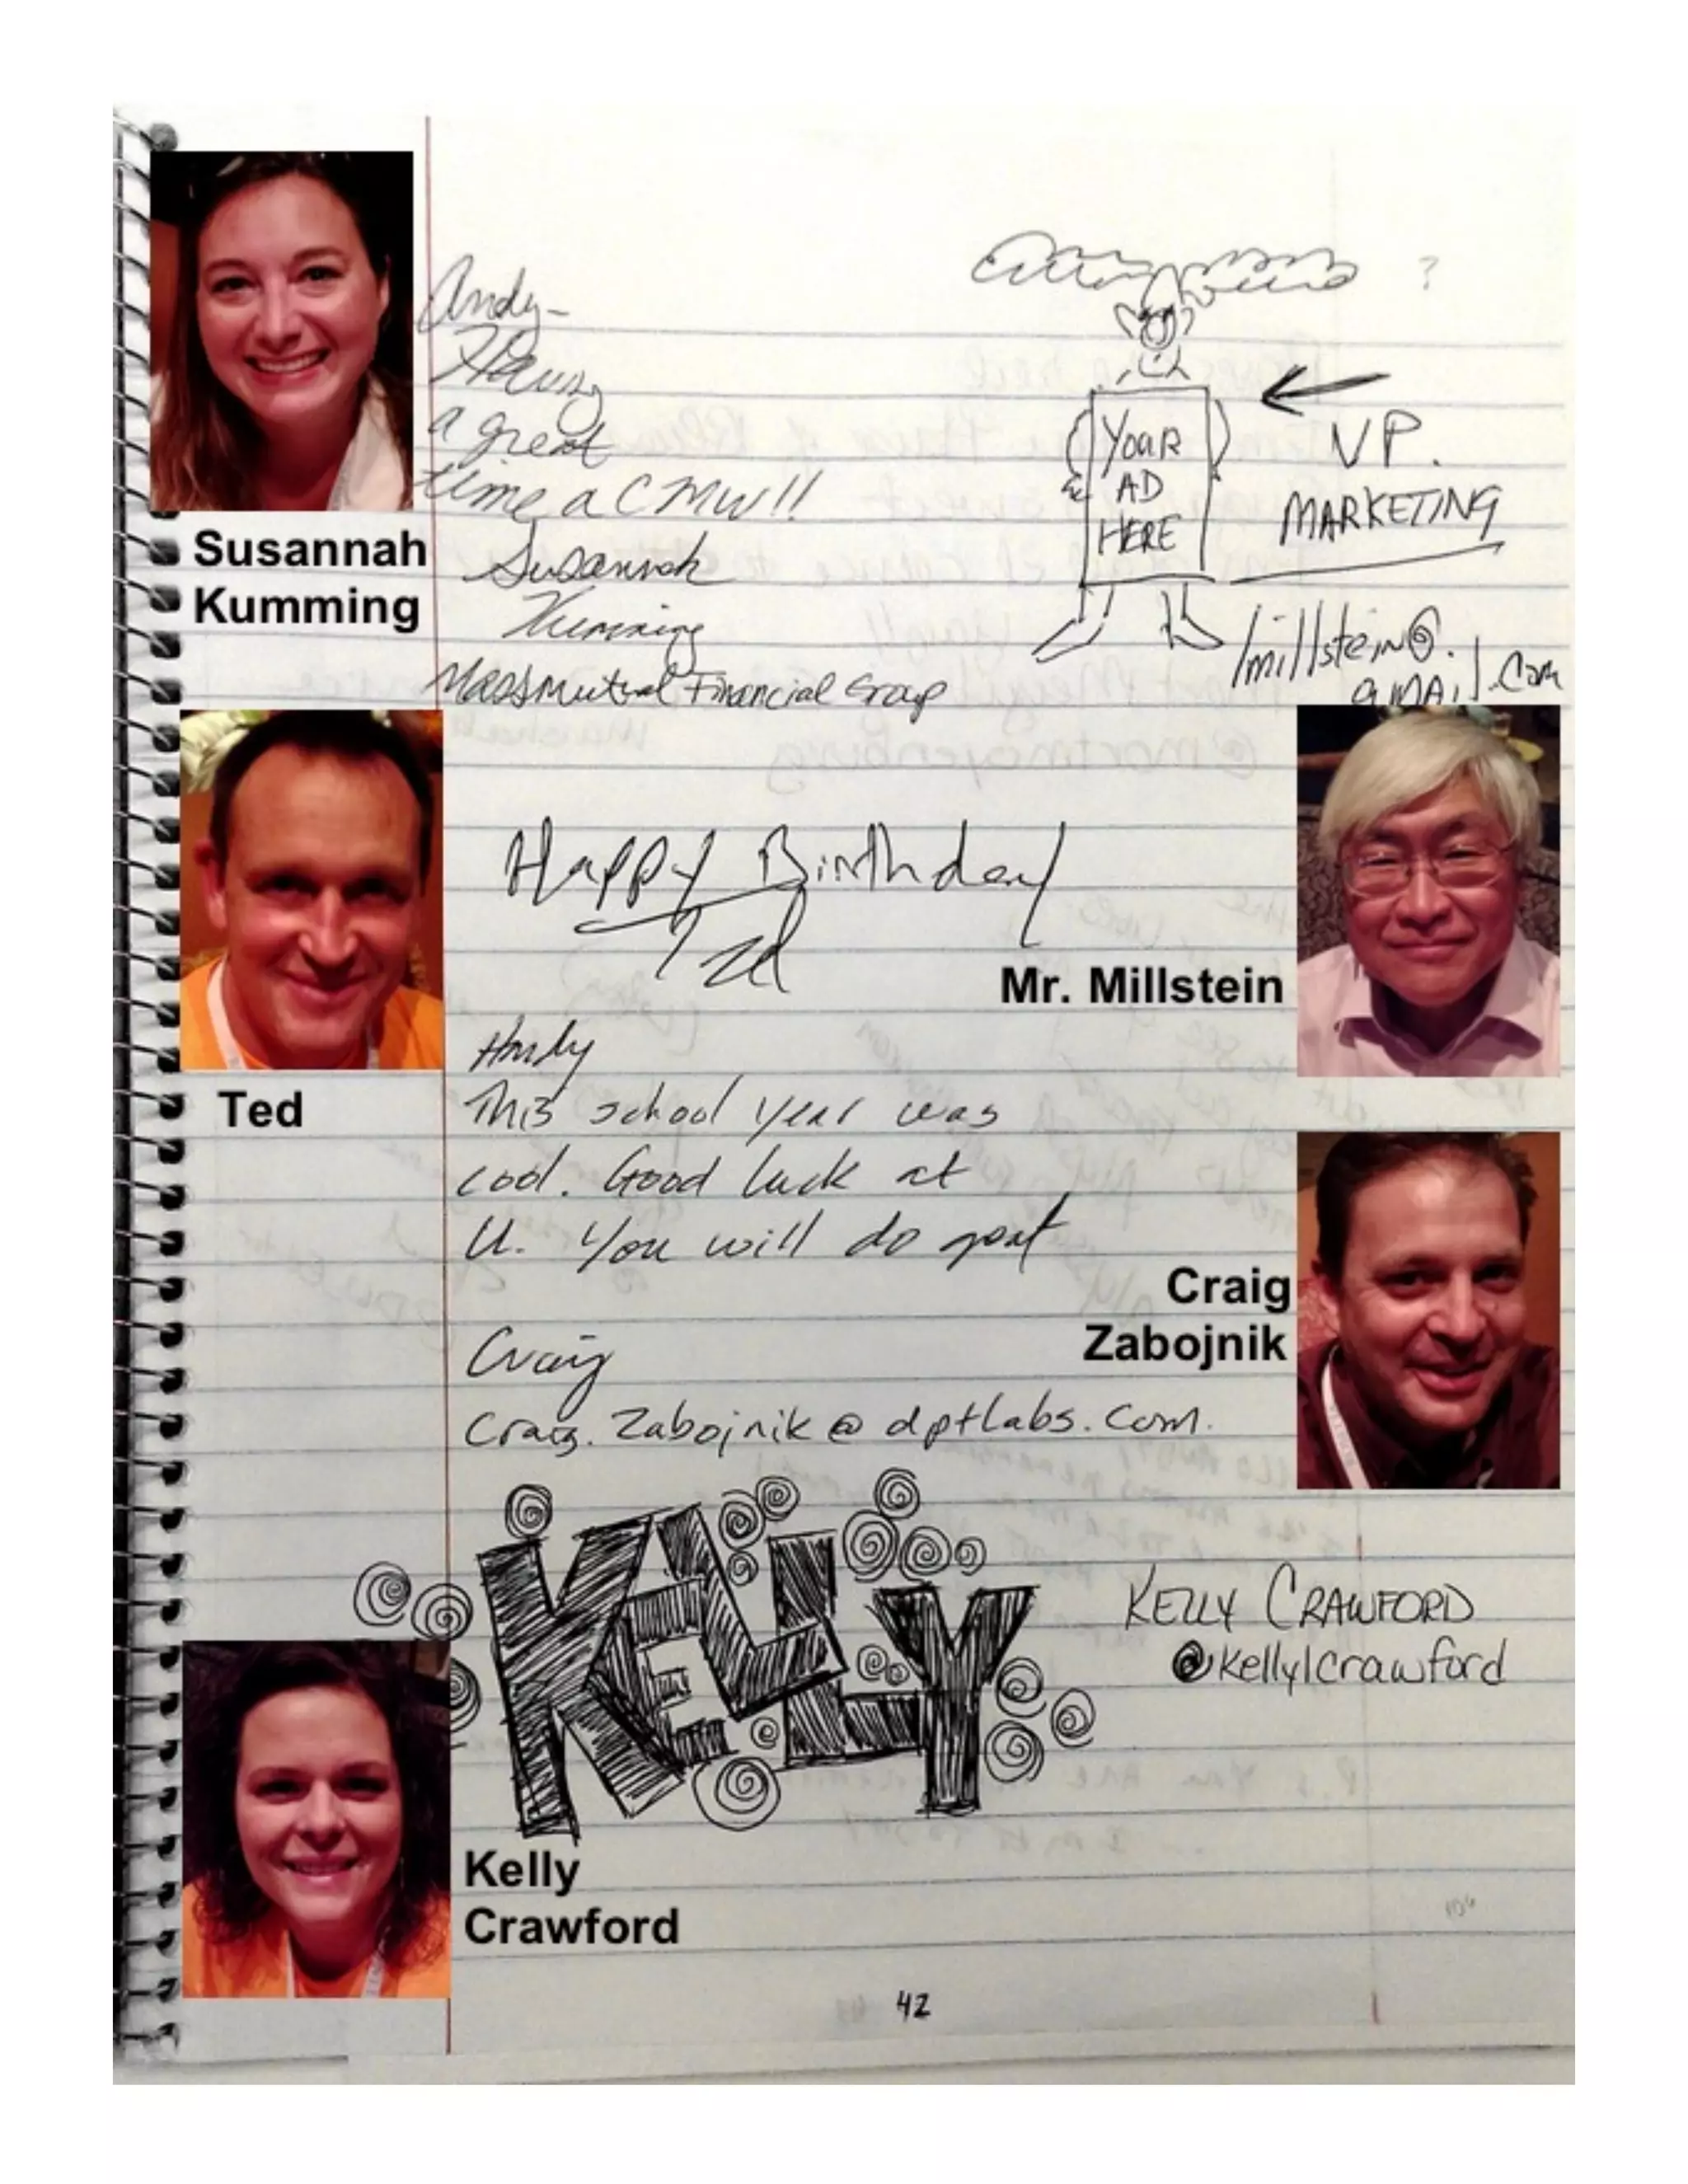 Andy-
Having
a great
time a CMW!!
Susannah
Kumming
MassMutual Financial Group
Susannah
Kumming
?
YOUR
AD
HERE
VP.
MARKETING
lmillstein@.
gmail.com
Mr. Millstein
Happy Birthday
Ted
Ted
Andy
This school year was
cool. Good luck at
U. You will do great
Craig
Craig.Zabojnik@dptlabs.com.
Craig
Zabojnik
KELLY
KELLY CRAWFORD
@kellylcrawford
Kelly
Crawford
106
42